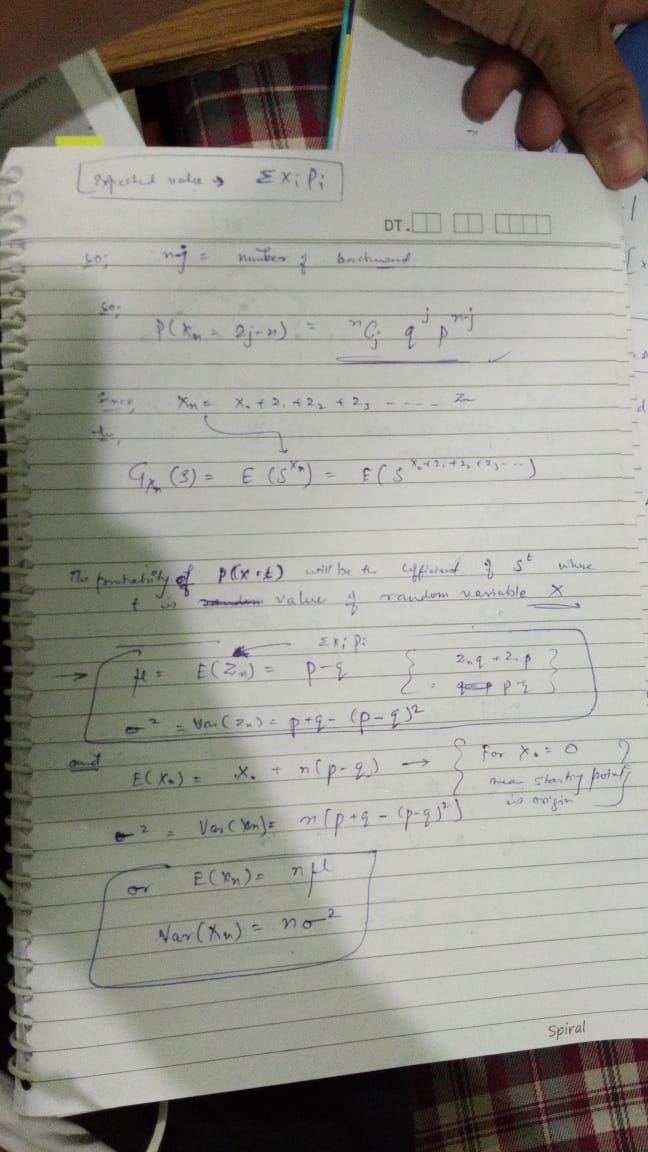 Expected value → Σ xi Pi
DT.
so; n-j = number of backward
so;
P(Xn = 2j-n) = nCj q^j p^n-j
Since, Xn = X0 + Z1 + Z2 + Z3 ----- Zn
So,
GXn (S) = E (S^Xn) = E(S^X0+Z1+Z2+Z3---)
The probability of P(X=t) will be the coefficient of S^t where
t is value of random variable X
Σ xi Pi
→ μ = E(Zn) = p-q { Zn q + Zn p
= p-q }
σ² = Var(Zn) = p+q - (p-q)²
and
E(Xn) = X0 + n(p-q) → { For X0 = 0
mean starting point
is origin }
σ² = Var(Xn) = n[p+q - (p-q)²]
or E(Xn) = nμ
Var(Xn) = nσ²
Spiral